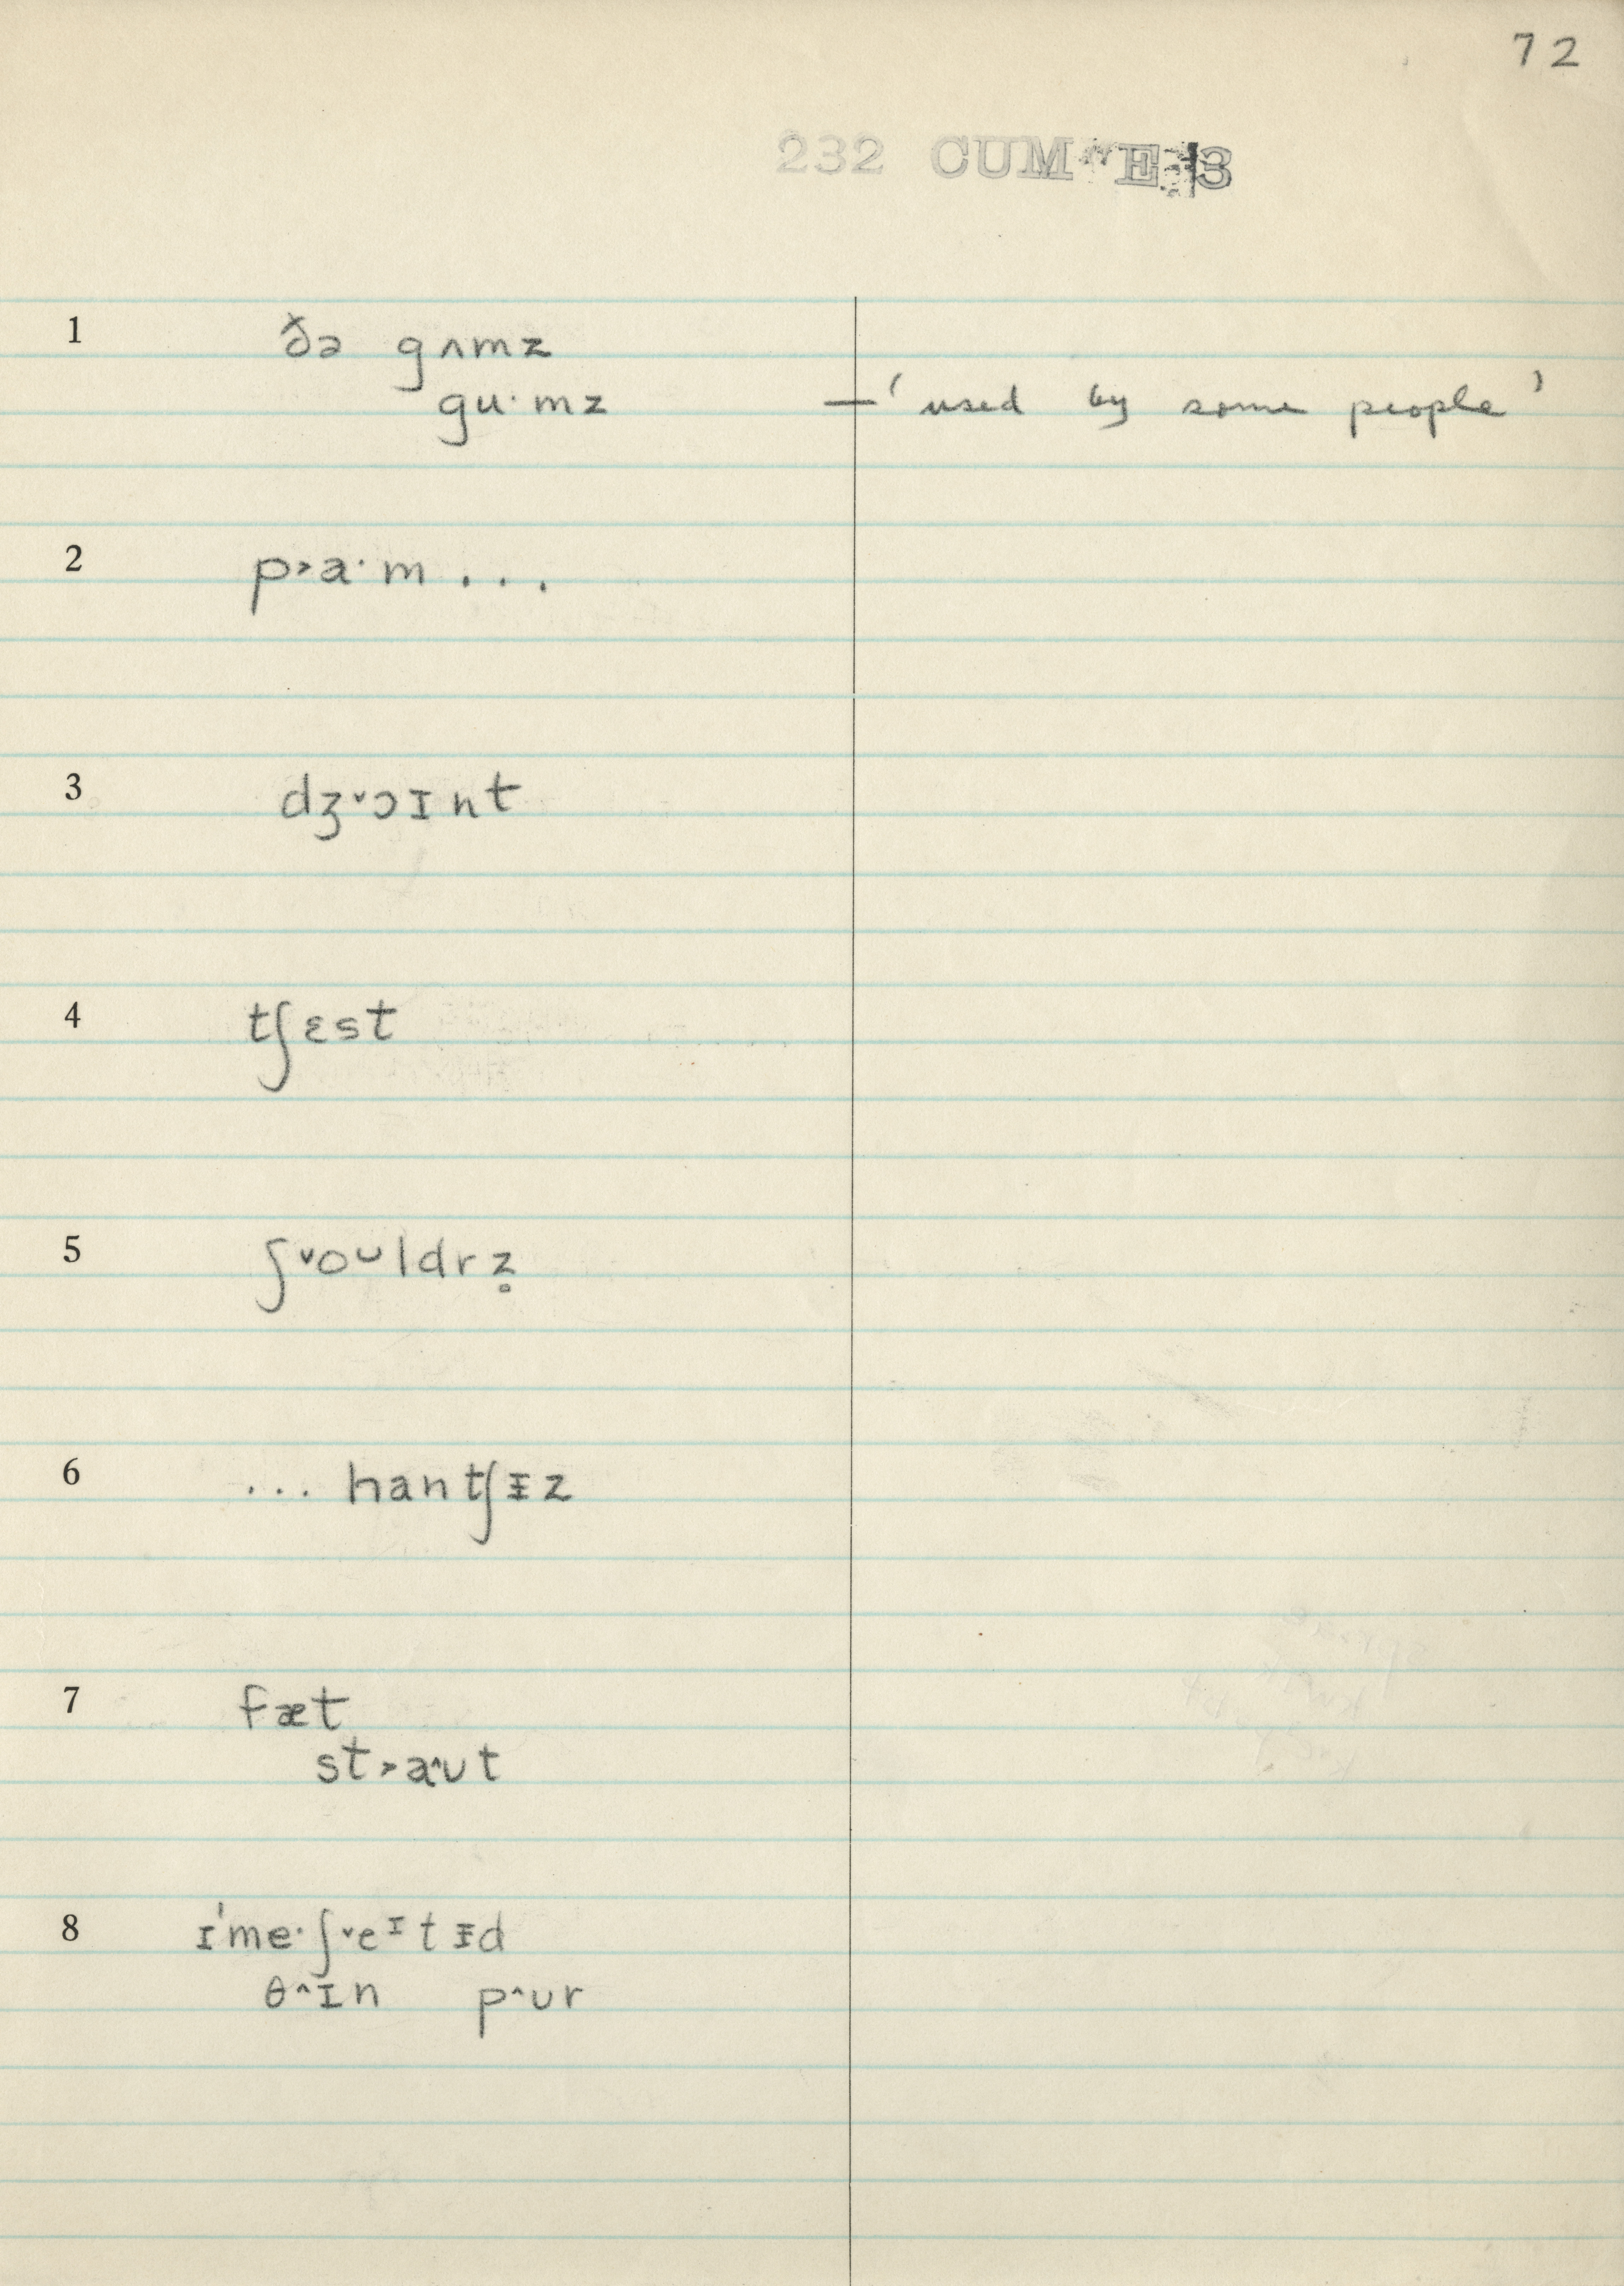 72
232 CUM E 3
1 ðə gʌmz
guˑmz — 'used by some people'
2 p˃aˑm . . .
3 dʒ˅ɔɪnt
4 tʃɛst
5 ʃ˅oᴜldrz̥
6 . . . hantʃᵻz
7 fæt
st˃a˄ʊt
8 ɪˈmeˑʃ˅eᶦtᵻd
θ˄ɪn p˄ʊr